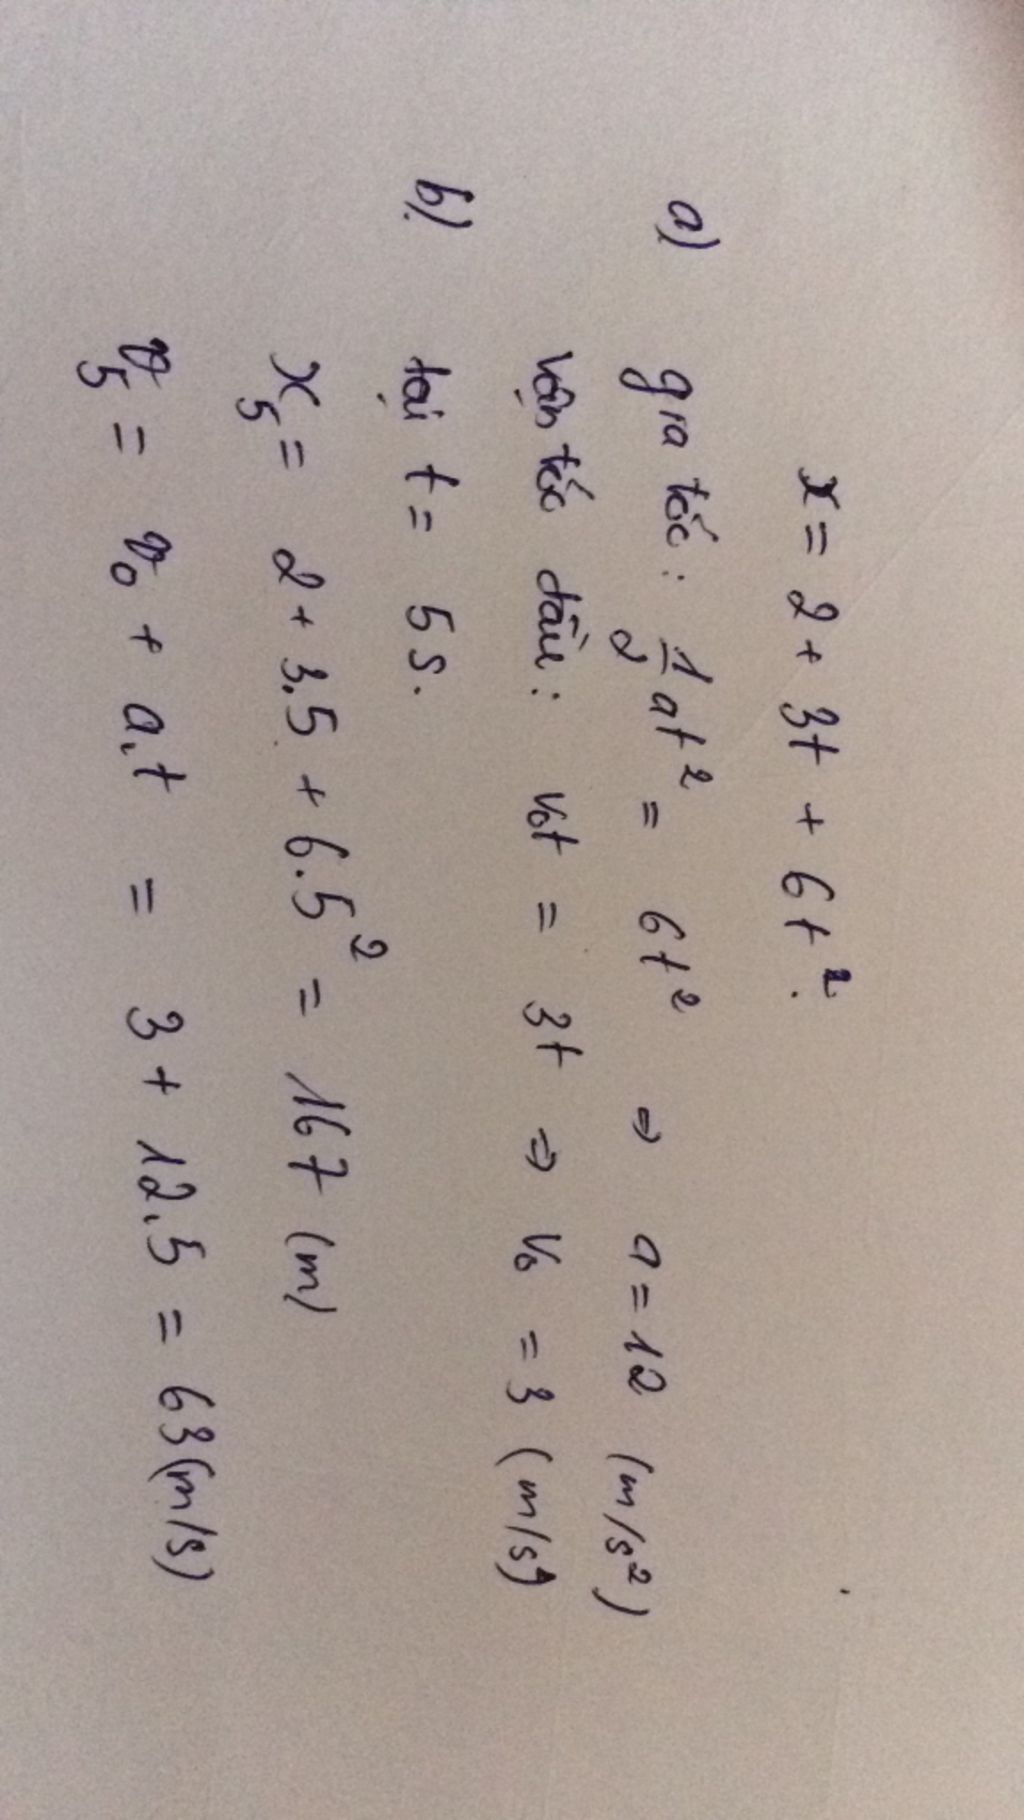 x = 2 + 3t + 6t².
a) gia tốc: 1/2 at² = 6t² ⇒ a = 12 (m/s²)
Vận tốc đầu: v₀t = 3t ⇒ v₀ = 3 (m/s)
b) tại t = 5s.
x₅ = 2 + 3.5 + 6.5² = 167 (m)
v₅ = v₀ + a.t = 3 + 12.5 = 63 (m/s)